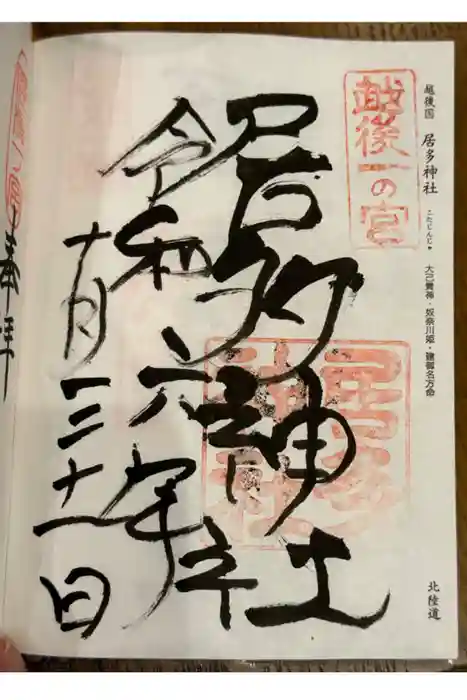 越後国 居多神社 こたじんじゃ 大己貴神・奴奈川姫・建御名方命 北陸道
越後一の宮
居多神社
居多
神社
令和六年
十月三十一日
奉拝